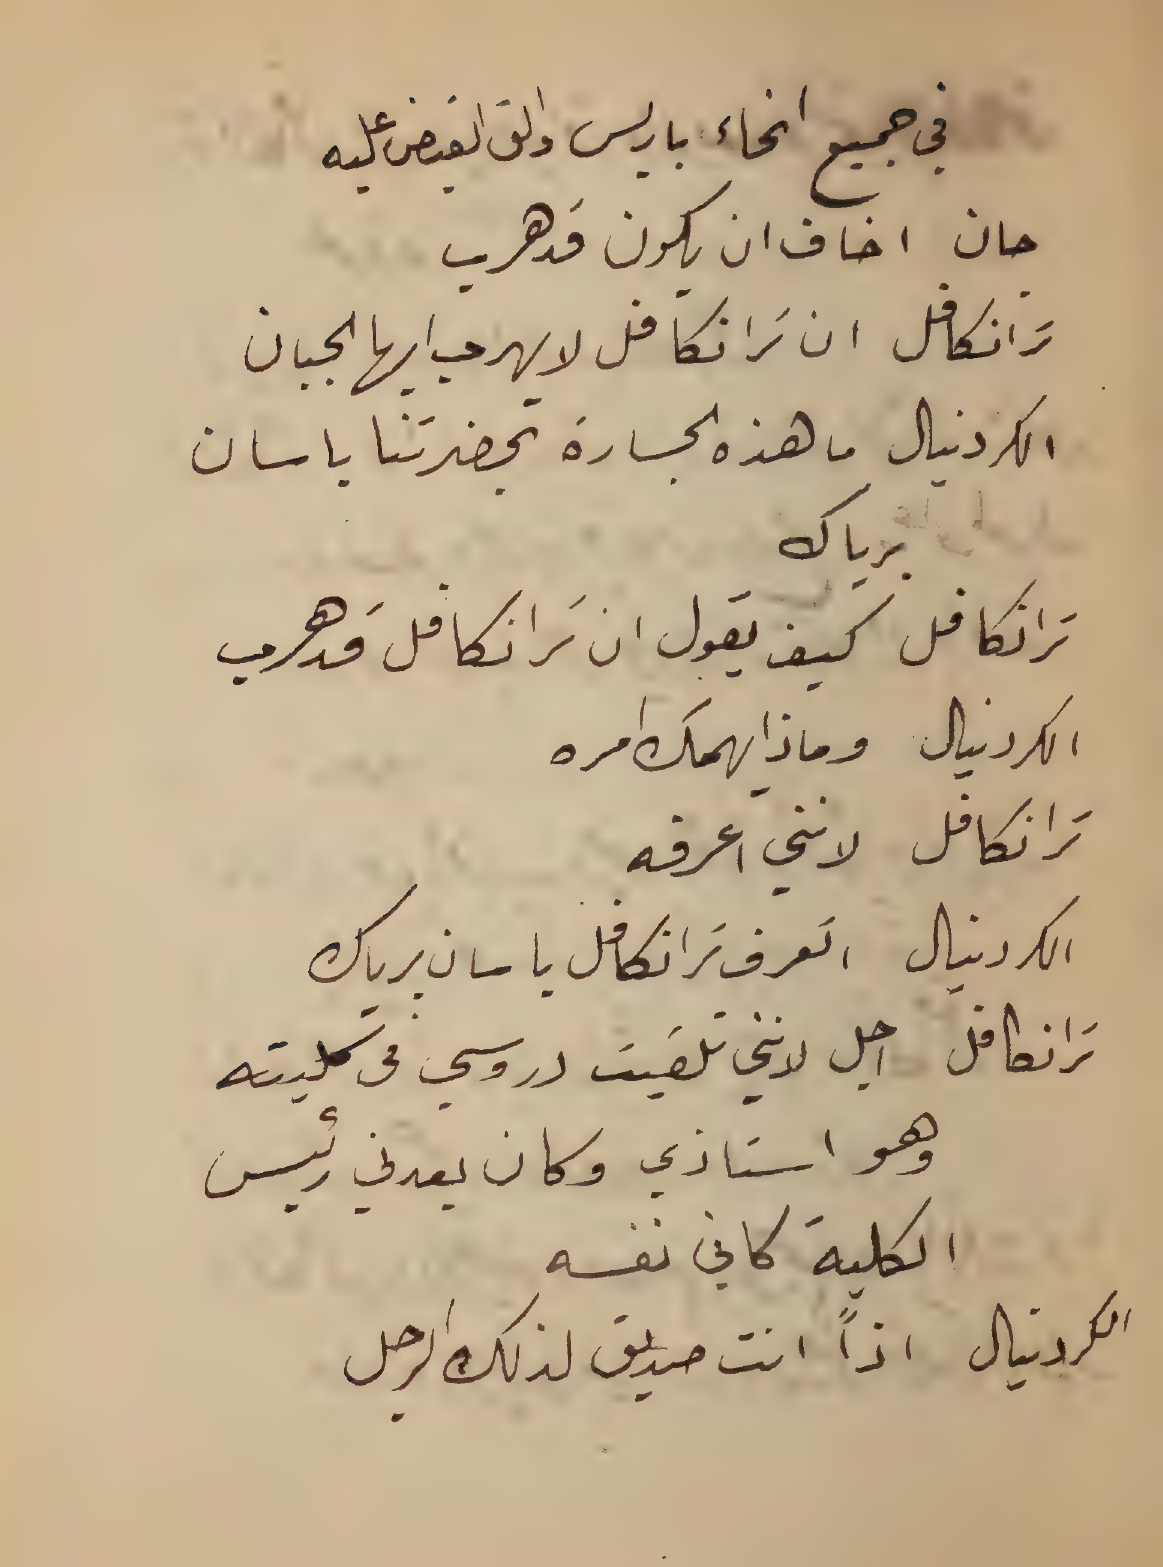 في جميع انحاء باريس والق القبض عليه
جان اخاف ان يكون قد هرب
ترانكافل ان ترانكافل لا يهرب ايها الجبان
الكردنيال ما هذه الجسارة بحضرتنا يا سان
برياك
ترانكافل كيف يقول ان ترانكافل قد هرب
الكردنيال وماذا يهمك امره
ترانكافل لانني اعرفه
الكردنيال اتعرف ترانكافل يا سان برياك
ترانكافل اجل لانني تلقيت دروسي في كليته
وهو استاذي وكان يعدني رئيس
الكلية كاني نفسه
الكردنيال اذاً انت صديق لذلك الرجل